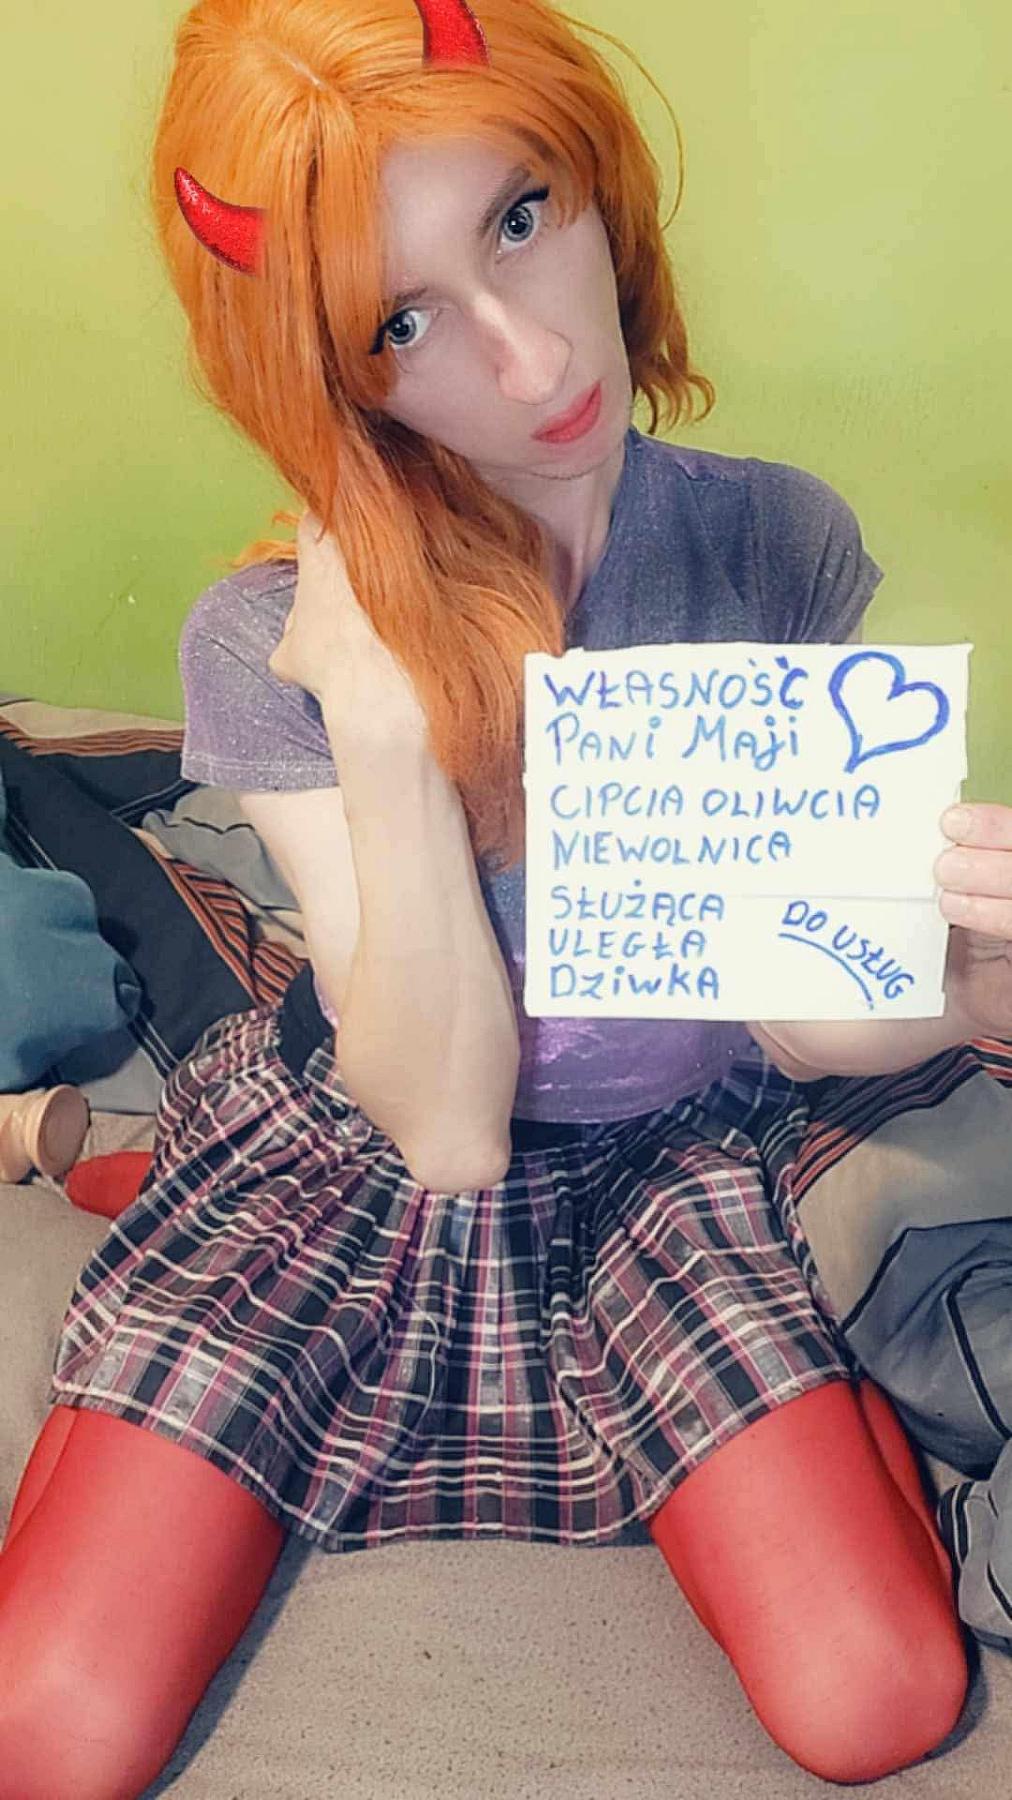 WŁASNOŚĆ
PANi MAji
CIPCIA OLIWCIA
NIEWOLNICA
SŁUŻĄCA
ULEGŁA
DZiWKA
DO USŁUG